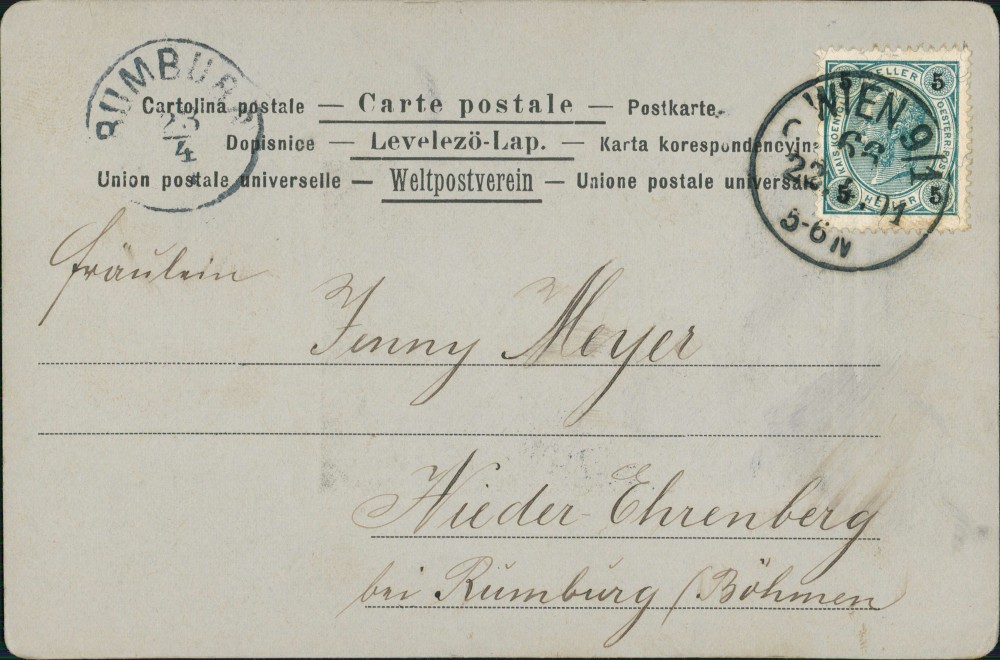 RUMBURG
23
4
Cartolina postale — Carte postale — Postkarte.
Dopisnice — Levelezö-Lap. — Karta korespondencyjna
Union postale universelle — Weltpostverein — Unione postale universale
5 HELLER 5
KAIS. KOENIGL. OESTERR. POST
5 HELLER 5
WIEN 9/1
22. 4. 01
5-6 N
Fräulein
Jenny Meyer
Nieder-Ehrenberg
bei Rumburg (Böhmen